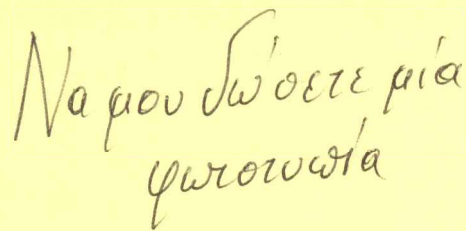 Να μου δώσετε μία
φωτοτυπία